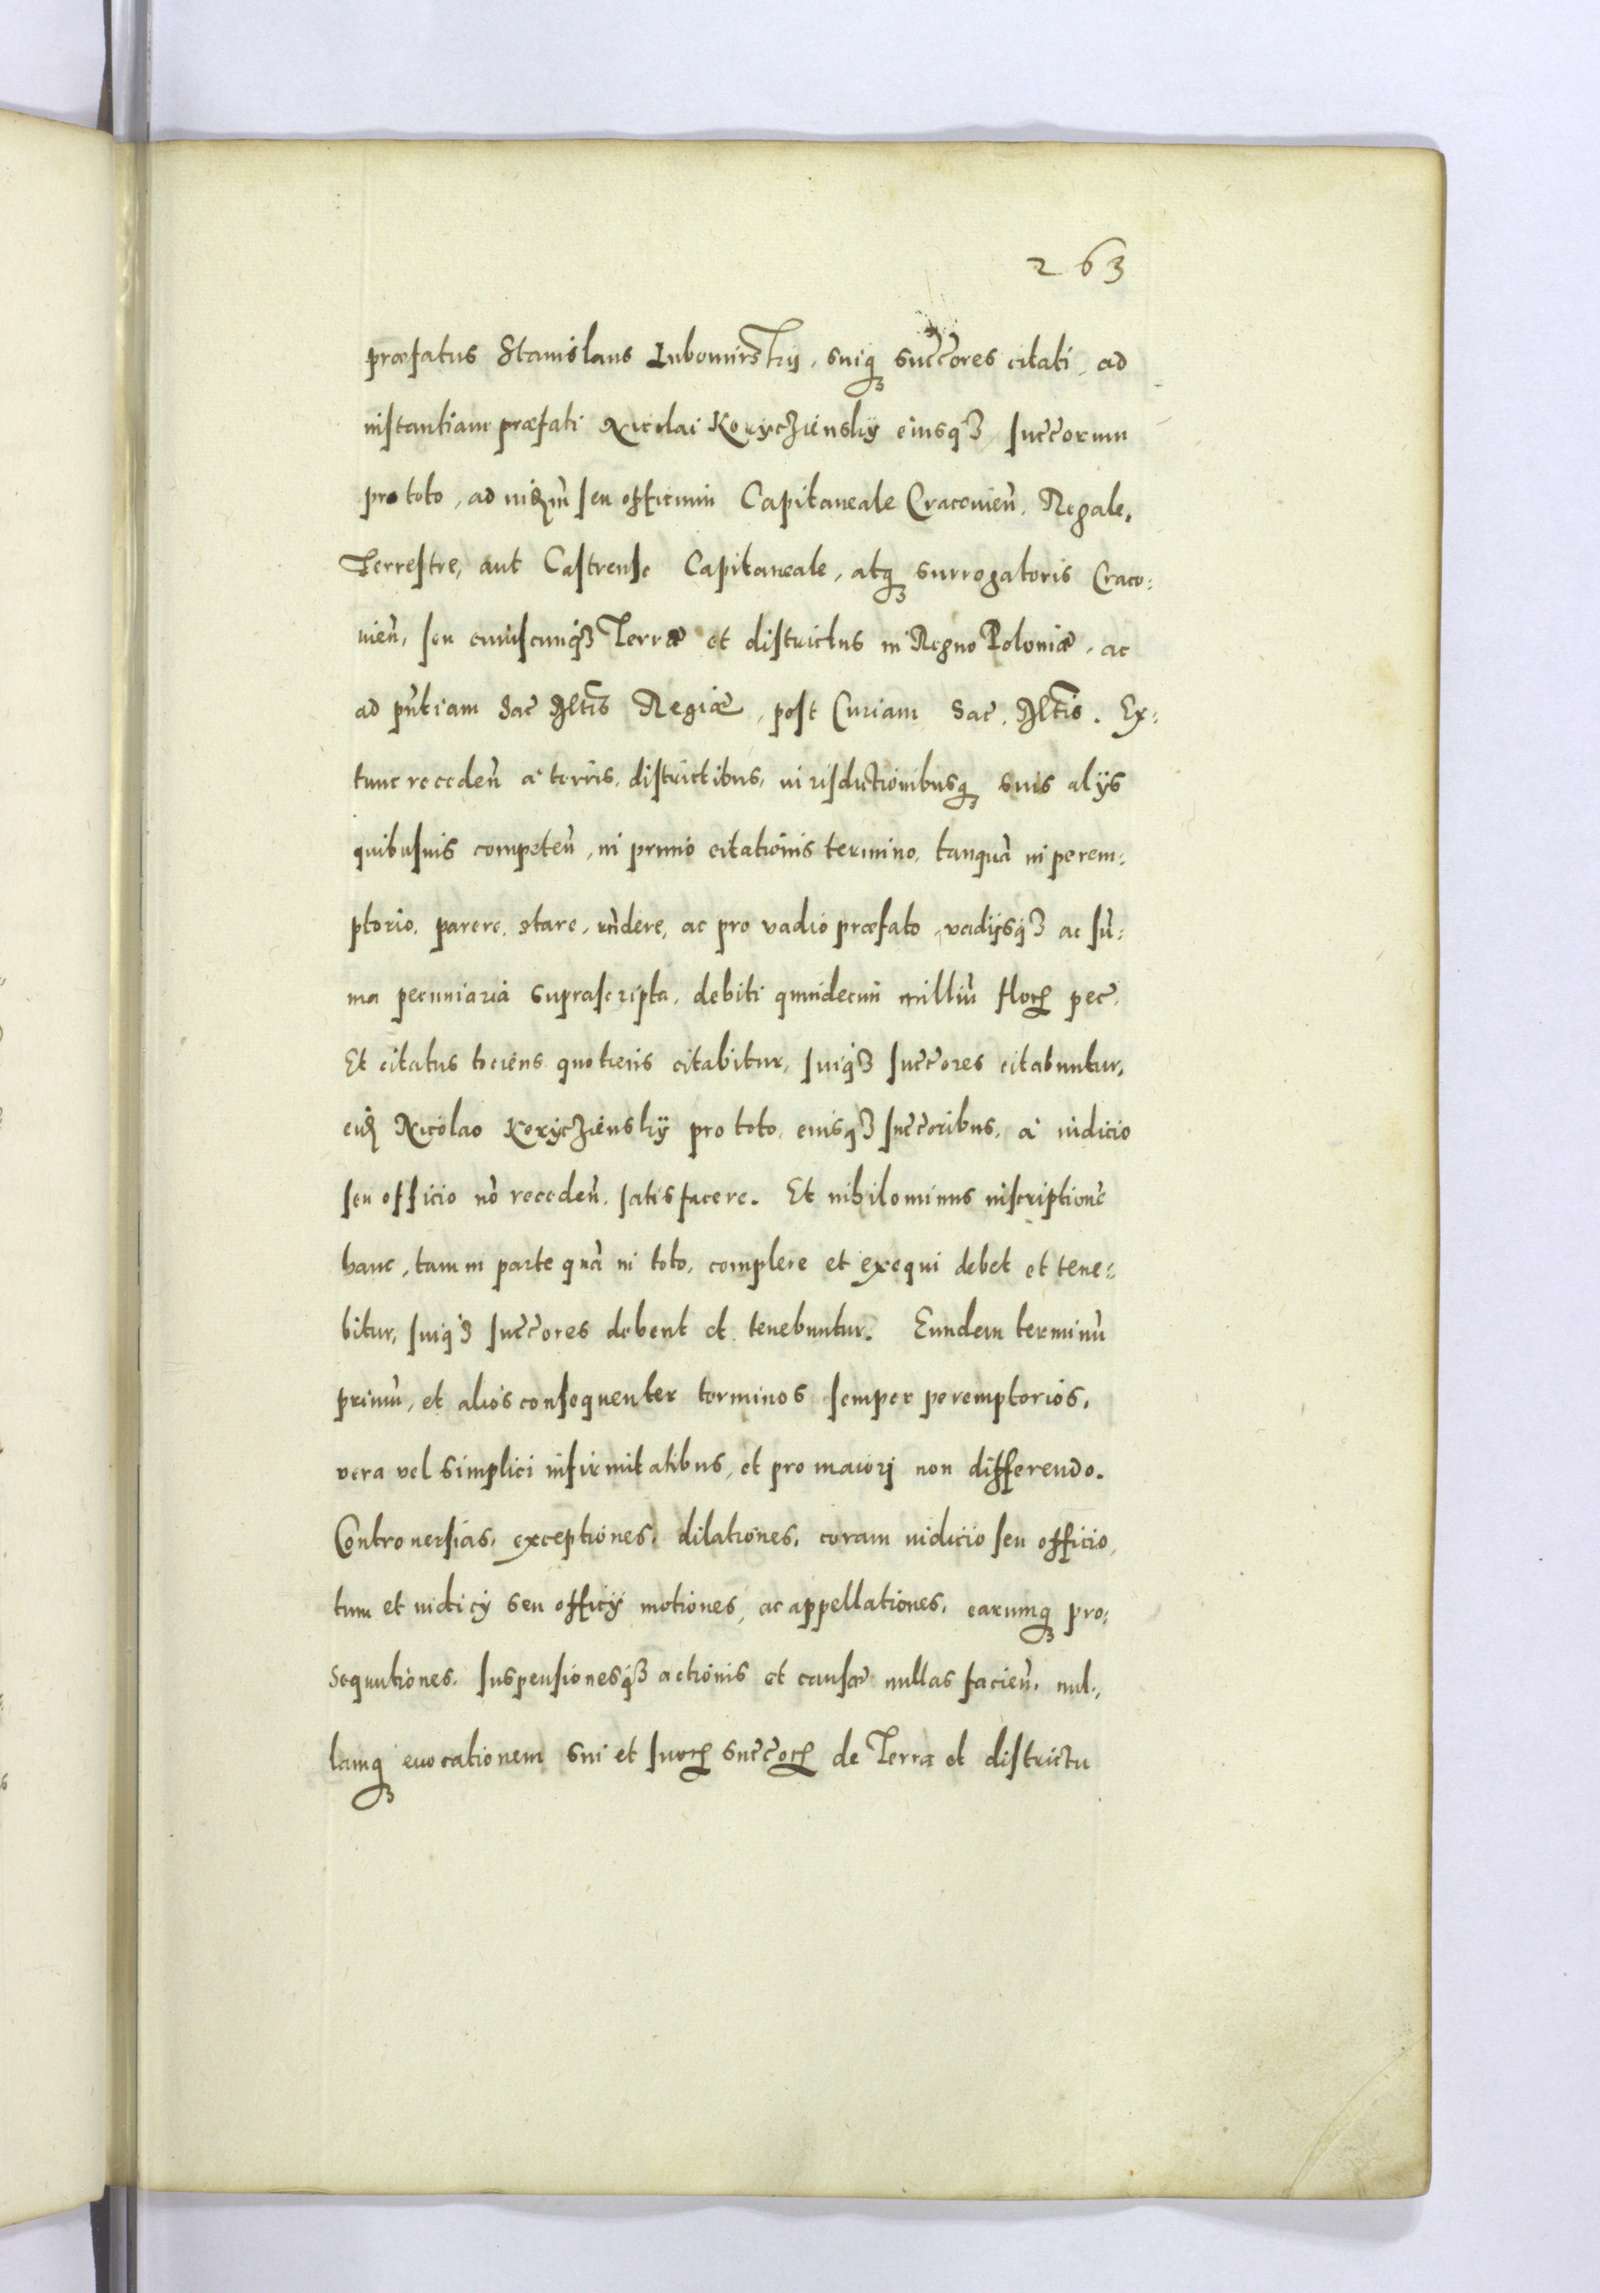 263
præfatus Stanislaus Lubomirskÿ, suiq₃ succ̃ores citati, ad
instantiam præfati Nicolai Koryczienskÿ eiusq₃ succ̃orum
pro toto, ad iudm̃ seu officium Capitaneale Cracouieñ. Regale,
Terrestre, aut Castrense Capitaneale, atq₃ surrogatoris Craco:
uieñ, seu cuiuscunq₃ Terræ et districtus in Regno Poloniæ, ac
ad pñtiam Sac̃ Mtis Regiæ, post Curiam Sac̃. Mtis. Ex:
tunc recedeñ a terris, districtibus, iurisdictionibusq₃ suis alÿs
quibusuis competeñ, in primo citationis termino, tanquã in perem:
ptorio, parere, stare, rñdere, ac pro vadio præfato, vadijsq₃ ac sũ:
ma pecuniaria suprascripta, debiti quindecim milliũ floꝝ pec̃.
Et citatus tociens quotiens citabitur, suiq₃ succ̃ores citabuntur,
eidꝫ Nicolao Koryczienskÿ pro toto, eiusq₃ succ̃oribus, a iudicio
seu officio nõ recedeñ. satisfacere. Et nihilominus inscriptionẽ
hanc, tam in parte quã in toto, complere et exequi debet et tene:
bitur, suiq₃ succ̃ores debent et tenebuntur. Eundem terminũ
primũ, et alios consequenter terminos semper peremptorios,
vera vel simplici infirmitatibus, et pro maiori non differendo.
Controuersias, exceptiones, dilationes, coram iudicio seu officio,
tum et iudicÿ seu officÿ motiones, ac appellationes, earumq₃ pro:
sequutiones, suspensionesq₃ actionis et causæ nullas facieñ, nul:
lamq₃ euocationem sui et suoꝝ succ̃oꝝ de Terra et districtu